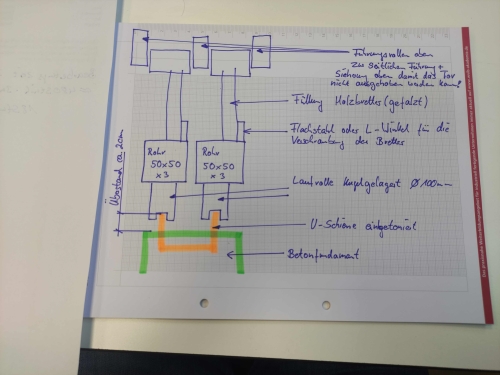 Führungsrollen oben
zur seitlichen Führung +
Sicherung oben damit das Tor
nicht ausgehoben werden kann!
Füllung Holzbretter (gefälzt)
Flachstahl oder L-Winkel für die
Verschraubung der Bretter
Rohr
50x50
x3
Rohr
50x50
x3
Laufrolle Kugelgelagert Ø 100mm
Überstand ca 2cm
U-Schiene einbetoniert
Betonfundament